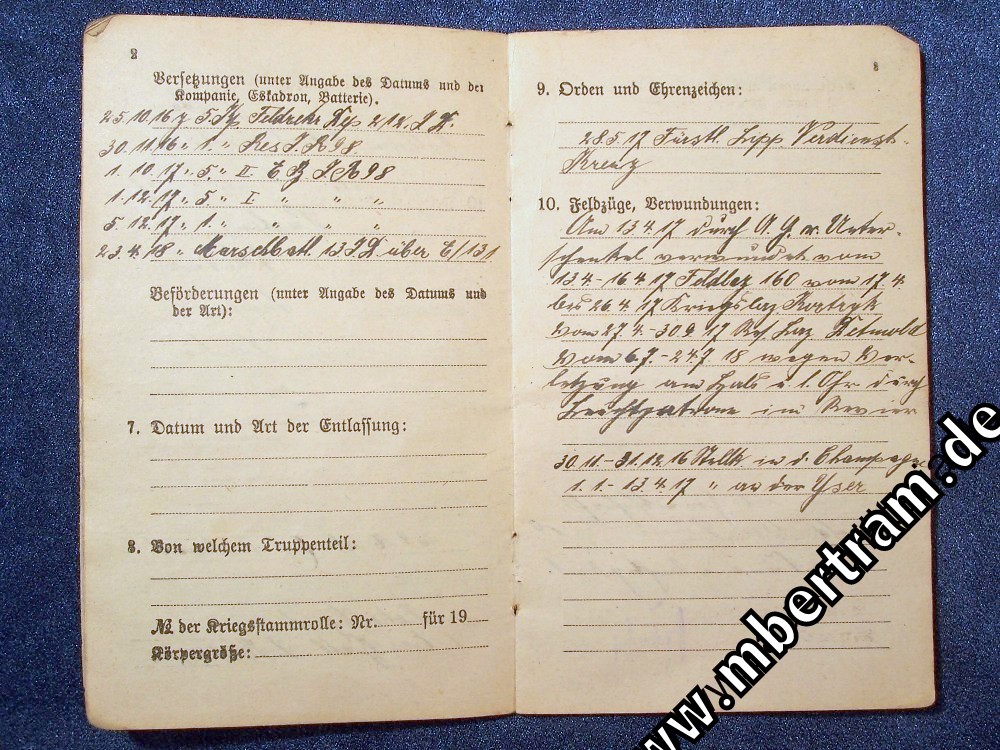 2
Versetzungen (unter Angabe des Datums und der
Kompanie, Eskadron, Batterie).
25.10.16 z. 5. Feldrekr. Dep. 2/12. J. D.
30.11.16 " 1. " Res. J. R 98
1. 10. 17 " 5. " II. E. B J. R 98
1. 12. 17 " 5 " I " " "
5. 12. 17 " 1. " " " "
23.4.18 " Marschbatl. 13 J.D. über E/131
Beförderungen (unter Angabe des Datums und
der Art):
7. Datum und Art der Entlassung:
8. Von welchem Truppenteil:
№ der Kriegsstammrolle: Nr. für 19
Körpergröße:
9. Orden und Ehrenzeichen:
28.5.17 Fürstl. Lipp Verdienst-
Kreuz
10. Feldzüge, Verwundungen:
Am 13.4.17 durch A. G. r. Unter-
schenkel verwundet vom
13.4.-16.4.17 Feldlaz 160 vom 17.4.
bis 26.4.17 Kriegslaz
vom 27.4.-30.9.17 Res. Laz. Detmold
Vom 6.7.-24.7.18 wegen Ver-
letzung am Hals u. l. Ohr durch
Leuchtpatrone im Revier
30.11.-31.12.16 Stellk. in d. Champagne
1.1.-13.4.17 " an der Yser
www.mbertram.de